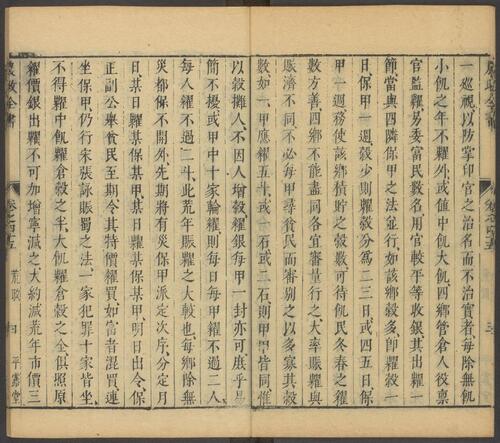 一巡視以防掌印官之治名而不治實者每除無飢
小飢之年不糶外或值中飢大飢四鄉管倉人役稟
官監糶另委富民數名用官較平等收銀其出糶一
節當與四隣保甲之法並行如該鄉穀多即糶穀一
日保甲一週穀少則糶穀分爲二三日或四五日保
甲一週務使該鄉積貯之穀數可待飢民冬春之糶
數方善四鄉不能盡同各宜審量行之大率賑糶與
賑濟不同不必每甲尋貧民而審別之以多寡其穀
數如一甲應糶五斗或一石或二石則甲甲皆同惟
以穀攤人不因人增穀糶銀每甲一封亦可庶乎易
簡不擾或甲中十家輪糶每日每甲糶不過二人
每人糶不過二斗此荒年賑糶之大較也每鄉除無
災都保不開外先期將有災保甲派定次序分定月
日某日糶某保某甲某日糶某保某甲明日出令保
正副公舉貧民至期令其特價糴買如富者混買連
坐保甲仍行宋張詠賑蜀之法一家犯罪十家皆坐
不得糶中飢糶倉穀之半大飢糶倉穀之全俱照原
糴價銀出糶不可加增寧減之大約減荒年市價三
農政全書 卷之四十五 荒政 四 平露堂